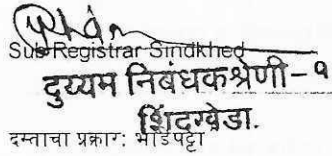 Sub Registrar Sindkhed
दुय्यम निबंधकश्रेणी-१
शिंदखेडा.
दस्ताचा प्रकार: भाडेपट्टा